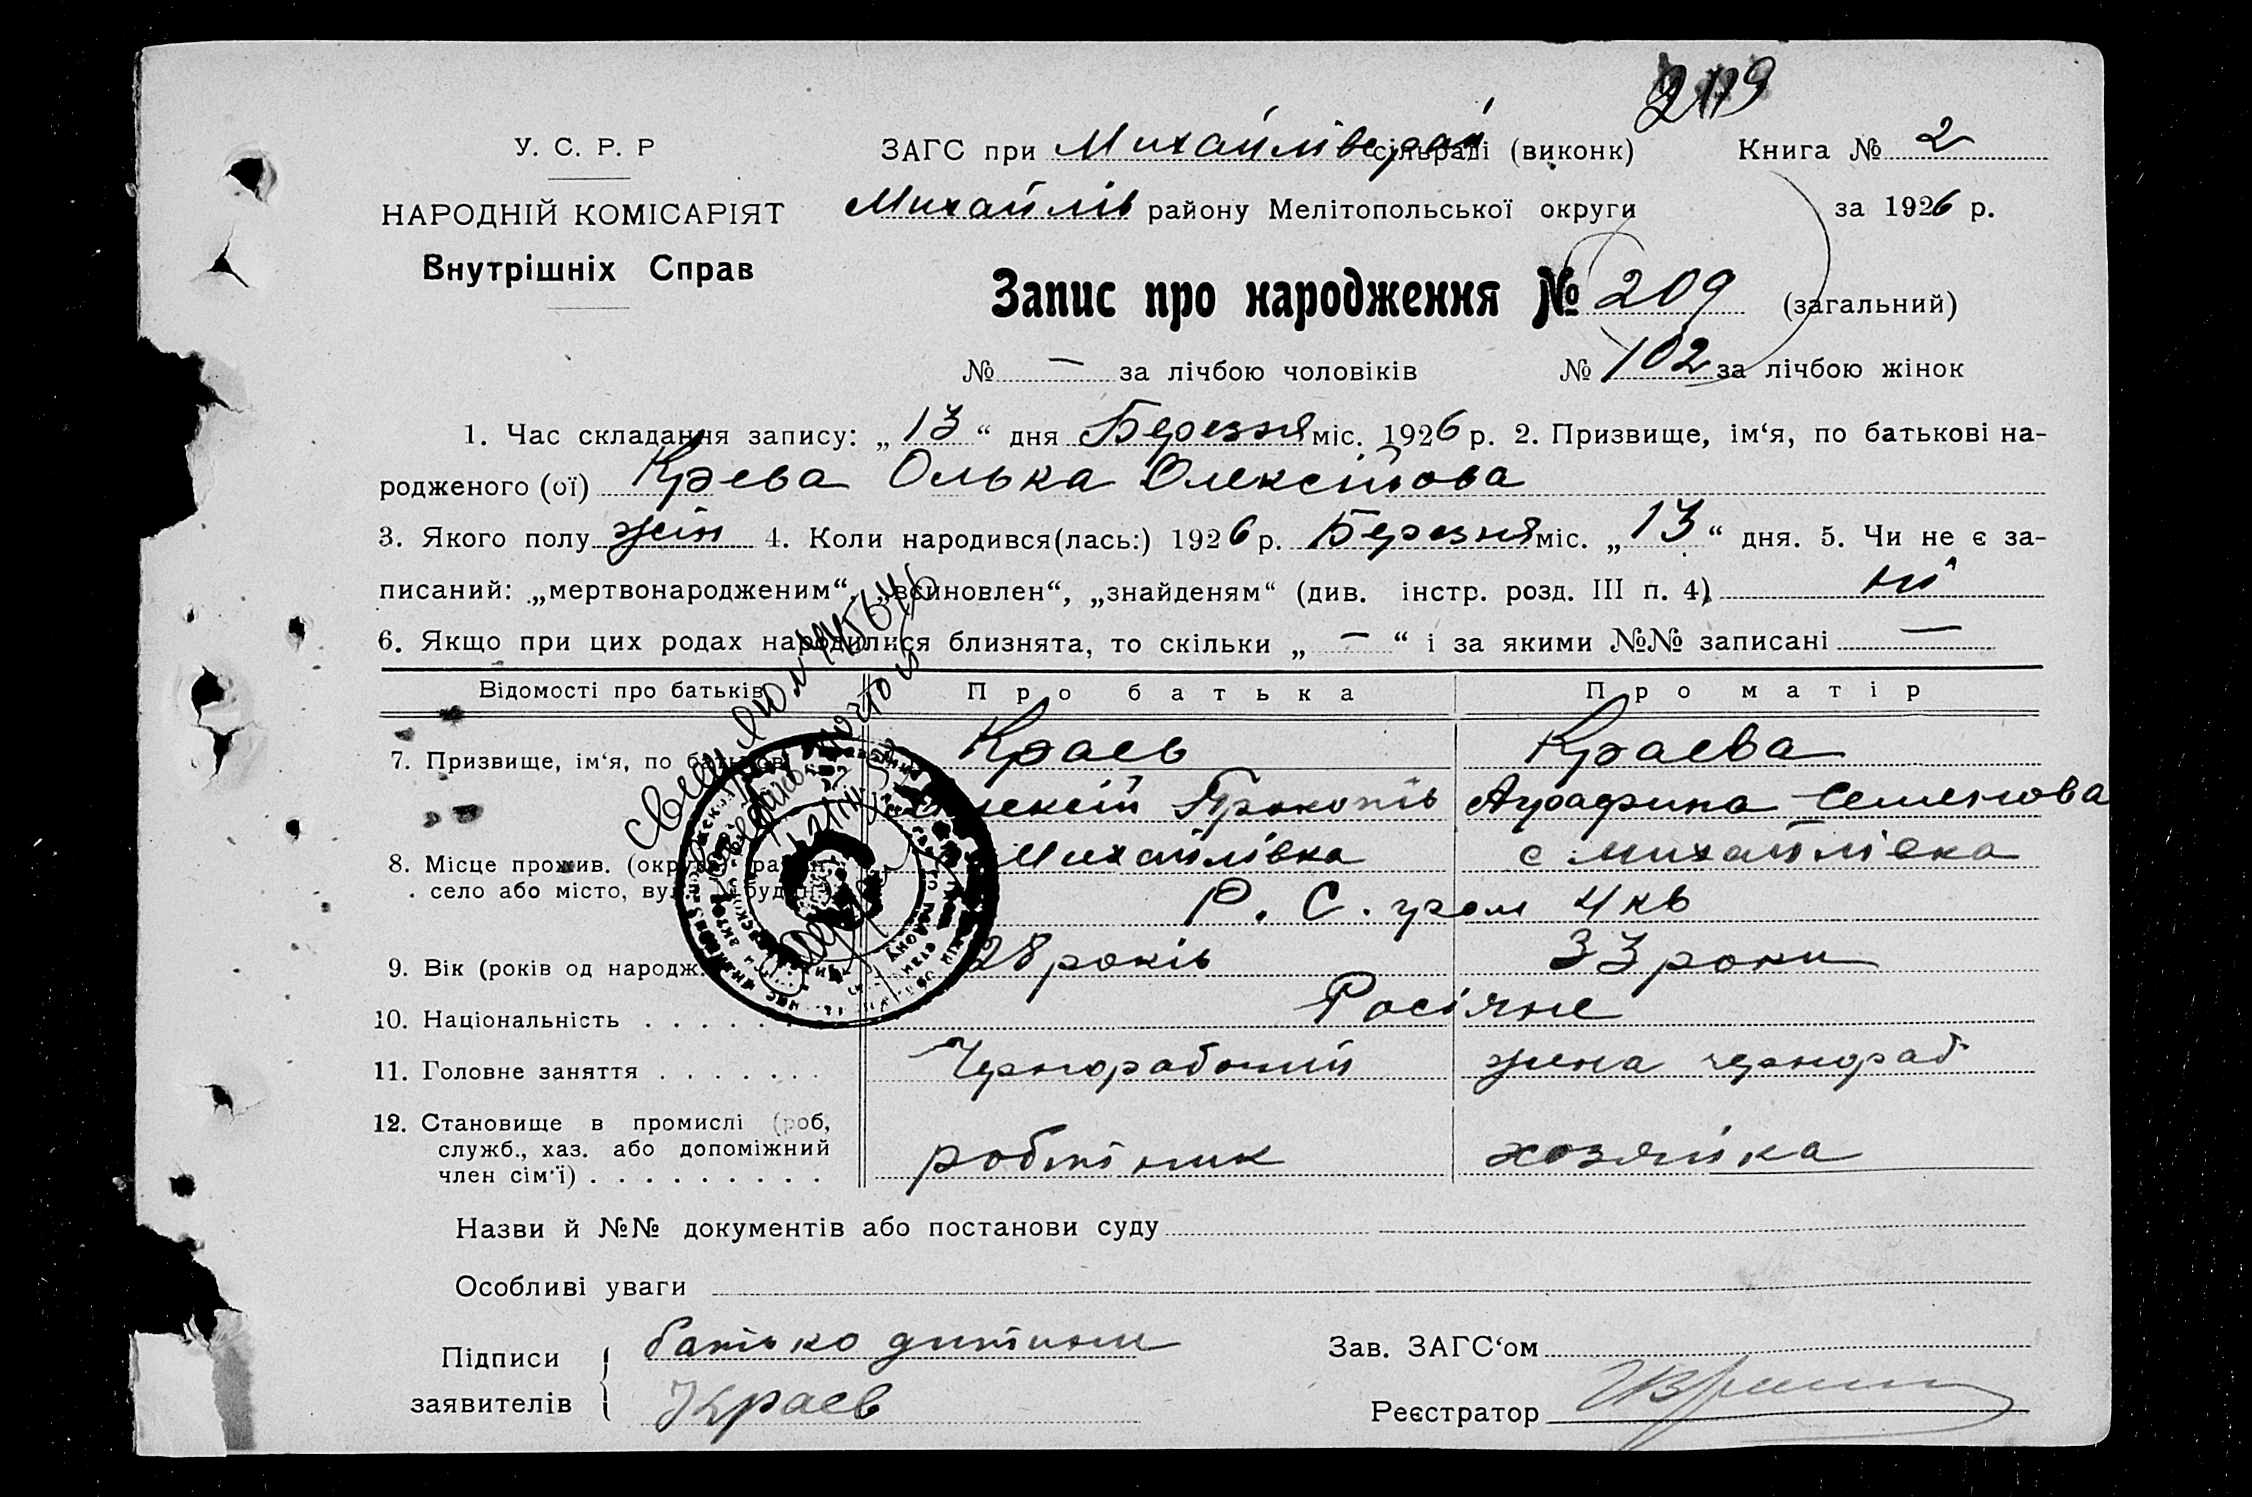 219
У. С. Р. Р
ЗАГС при Михайлів рай сільраді (виконк) Книга № 2
НАРОДНІЙ КОМІСАРІЯТ
Михайлів району Мелітопольської округи за 1926 р.
Внутрішніх Справ
Запис про народження № 209 (загальний)
№ — за лічбою чоловіків № 102 за лічбою жінок
1. Час складання запису: „13“ дня Березня міс. 1926 р. 2. Призвище, ім‘я, по батькові на-
родженого (ої) Краева Олька Олексійова
3. Якого полу жін 4. Коли народився(лась:) 1926 р. Березня міс. „13“ дня. 5. Чи не є за-
писаний: „мертвонародженим“, „всиновлен“, „знайденям“ (див. інстр. розд. III п. 4) ні
6. Якщо при цих родах народилися близнята, то скільки „ — “ і за якими №№ записані —
Відомості про батьків Про батька Про матір
7. Призвище, ім‘я, по батькові Краев Краева
Олексій Прокопів Аграфина Семенова
8. Місце прожив. (округа, район, Михайлівка с Михайлівка
село або місто, вул. і буд. Р. С. гром 4 кв
9. Вік (років од народж. 28 років 33 роки
10. Національність Росіяне
11. Головне заняття Чернорабочий жена чернораб
12. Становище в промислі (роб,
служб., хаз. або допоміжний робітник хозяйка
член сім‘ї)
Назви й №№ документів або постанови суду
Особливі уваги
Підписи батько дитини Зав. ЗАГС‘ом
заявителів Краев Реєстратор